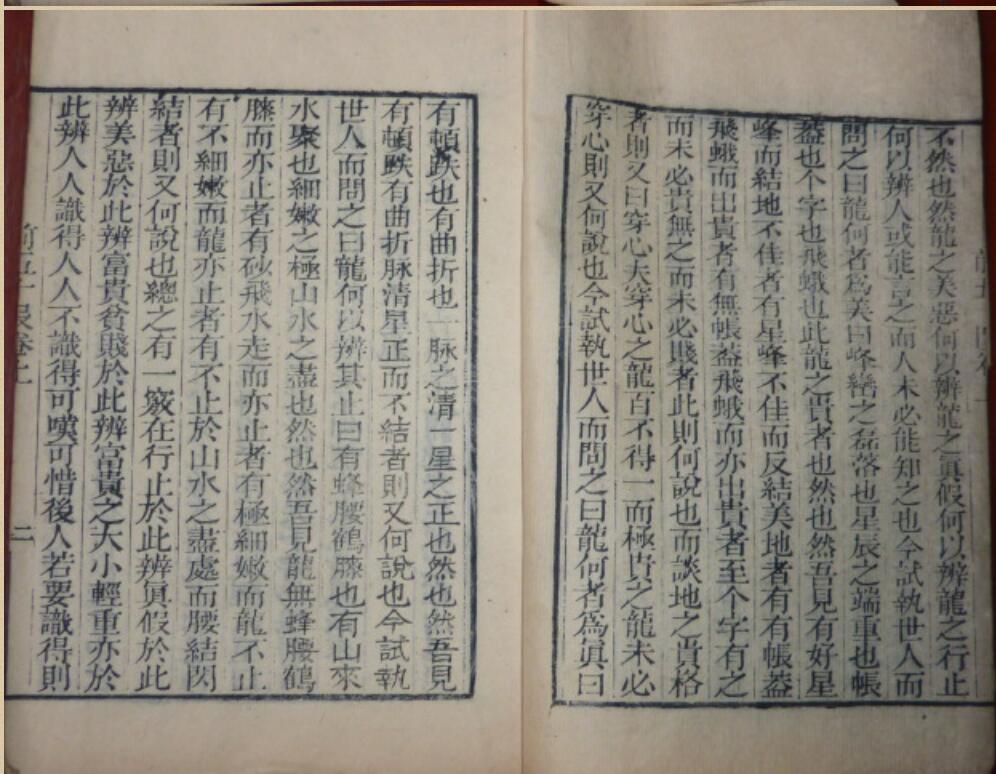 不然也然龍之美惡何以辨龍之眞假何以辨龍之行止
何以辨人或能言之而人未必能知之也今試執世人而
問之曰龍何者爲美曰峰巒之磊落也星辰之端重也帳
葢也个字也飛蛾也此龍之貴者也然也然吾見有好星
峰而結地不佳者有星峰不佳而反結美地者有有帳葢
飛蛾而出貴者有無帳葢飛蛾而亦出貴者至个字有之
而未必貴無之而未必賤者此則何說也而談地之貴格
者則又曰穿心夫穿心之龍百不得一而極貴之龍未必
穿心則又何說也今試執世人而問之曰龍何者爲眞曰
有頓跌也有曲折也一脉之清一星之正也然也然吾見
有頓跌有曲折脉清星正而不結者則又何說也今試執
世人而問之曰龍何以辨其止曰有蜂腰鶴膝也有山來
水聚也細嫩之極山水之盡也然也然吾見龍無蜂腰鶴
膝而亦止者有砂飛水走而亦止者有極細嫩而龍不止
有不細嫩而龍亦止者有不止於山水之盡處而腰結閃
結者則又何說也總之有一竅在行止於此辨眞假於此
辨美惡於此辨富貴貧賤於此辨富貴之大小輕重亦於
此辨人人識得人人不識得可嘆可惜後人若要識得則
卷上
二